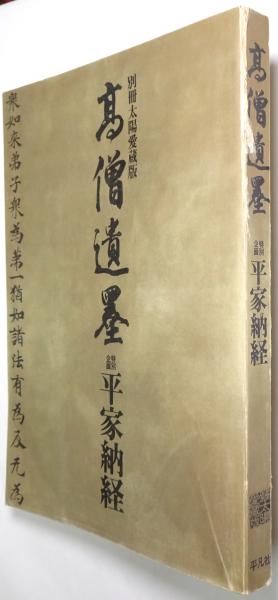 別冊太陽愛蔵版
高僧遺墨
特別
企画
平家納経
衆如来弟子衆為第一猶如諸法有為及无為
高僧遺墨
特別
企画
平家納経
平凡社